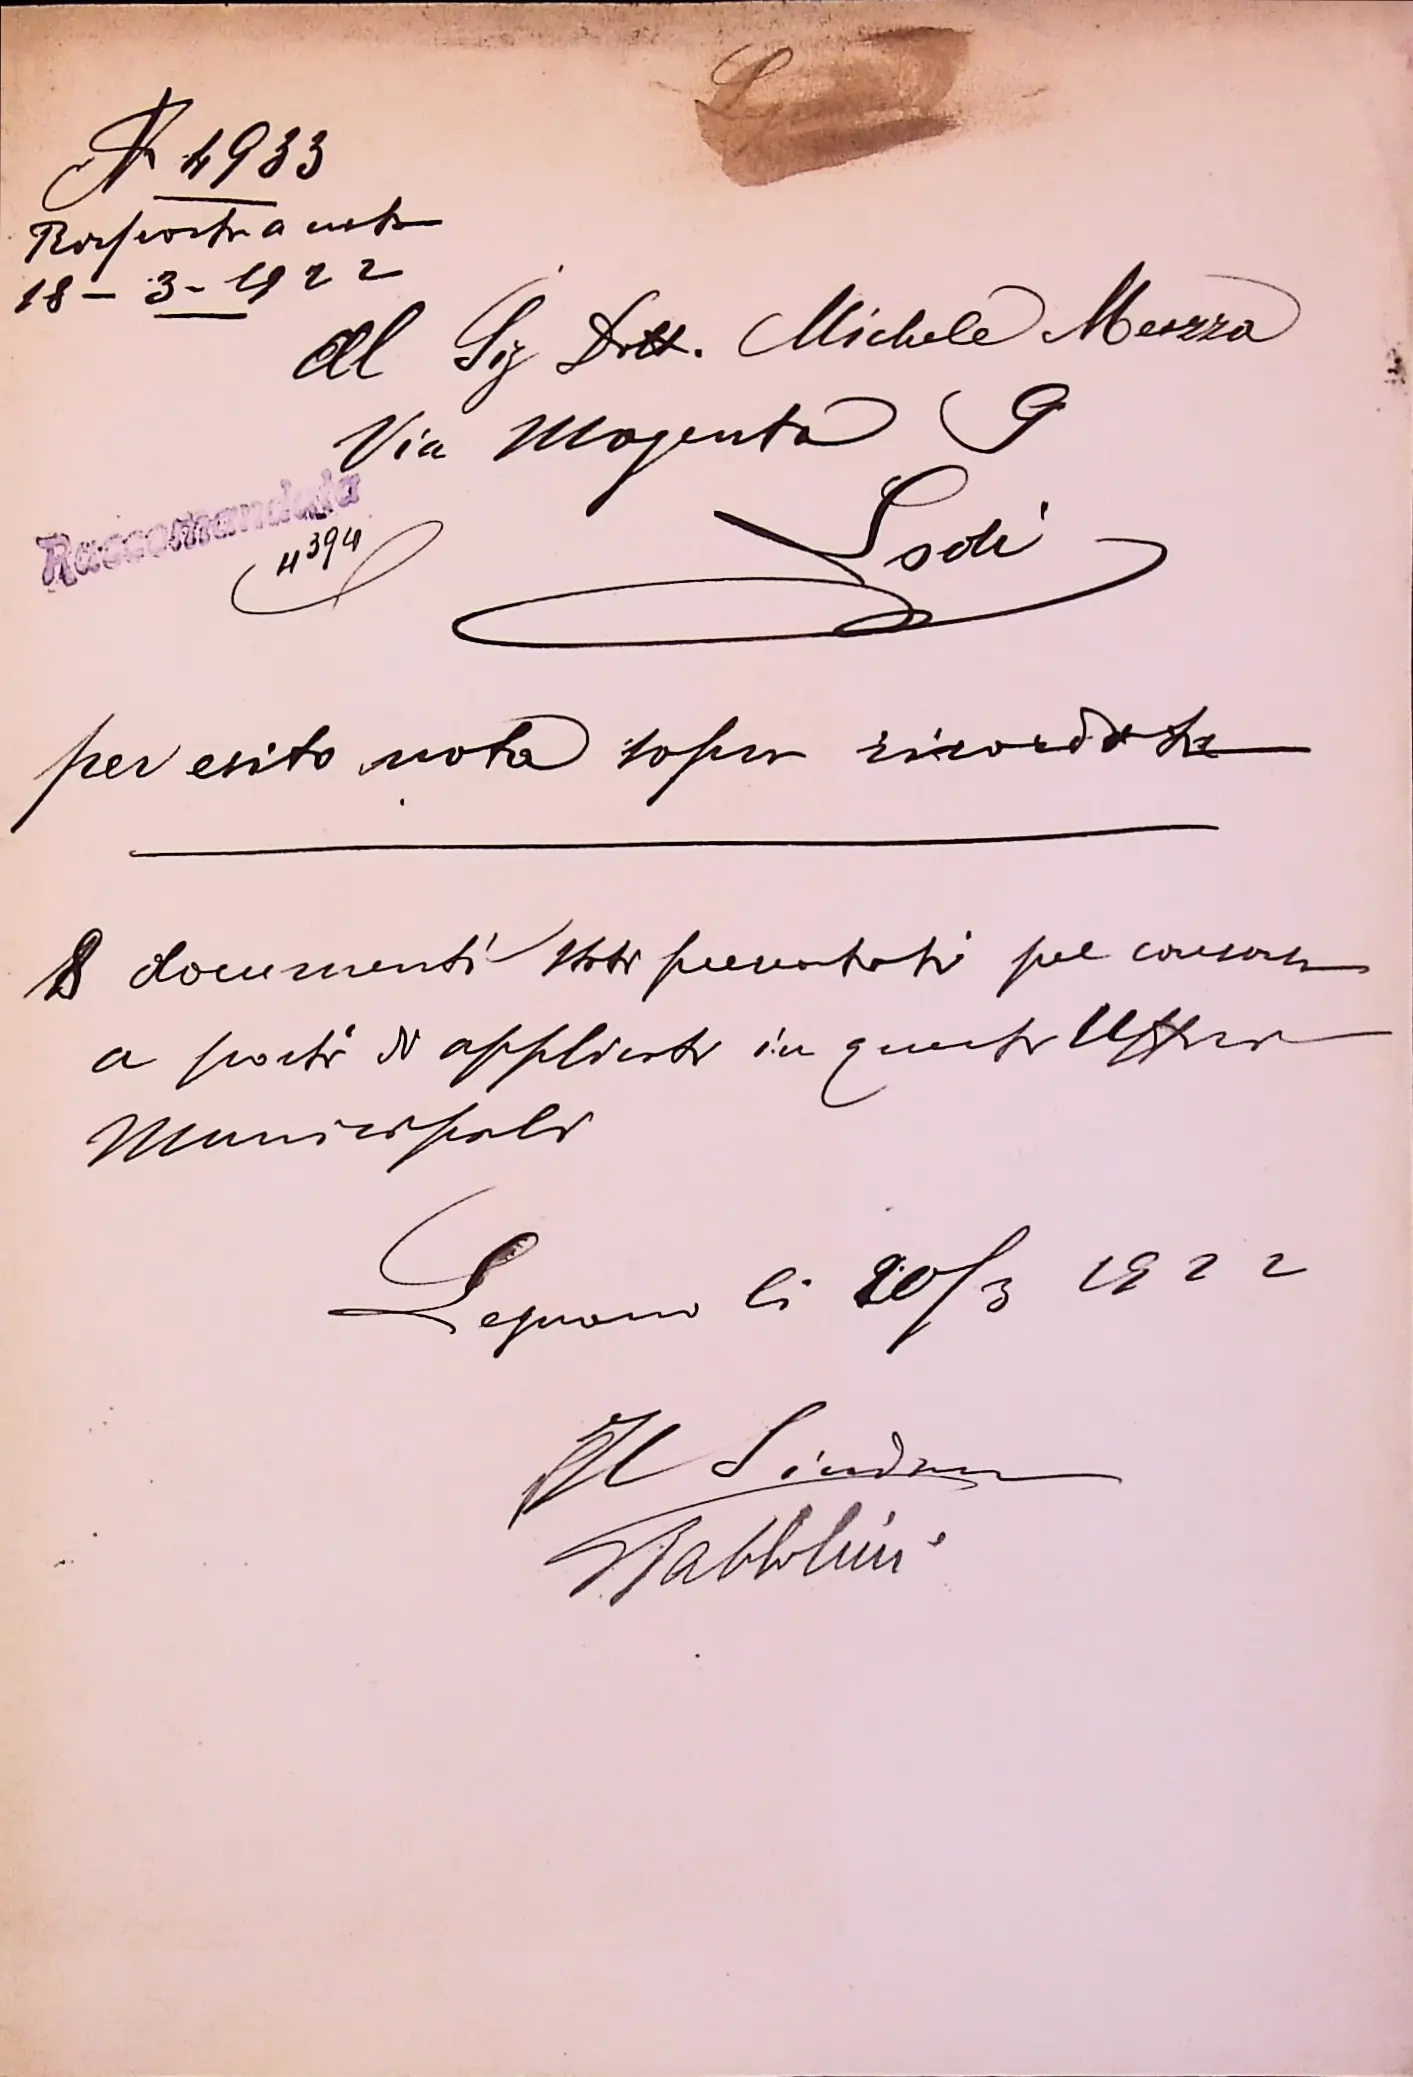 N 4933
Risposta a nota
18-3-1922
Al Sig Dott. Michele Meazza
Via Magenta 9
Raccomandata
4394
Lodi
per esito nota sopra ricordata
8 documenti stati presentati pel concorso
a posti di applicati in questi Uffici
Municipali
Legnano li 20/3 1922
Il Sindaco